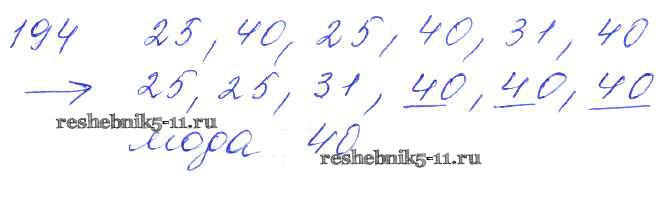 194 25, 40, 25, 40, 31, 40
→ 25, 25, 31, 40, 40, 40
reshebnik5-11.ru
мода 40
reshebnik5-11.ru